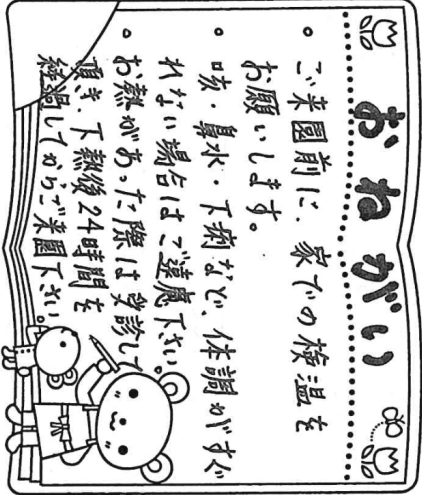 おねがい
• ご来園前に、家での検温を
お願いします。
• 咳・鼻水・下痢など、体調がすぐ
れない場合はご遠慮下さい。
• お熱があった際は受診して
頂き、下熱後24時間を
経過してからご来園下さい。